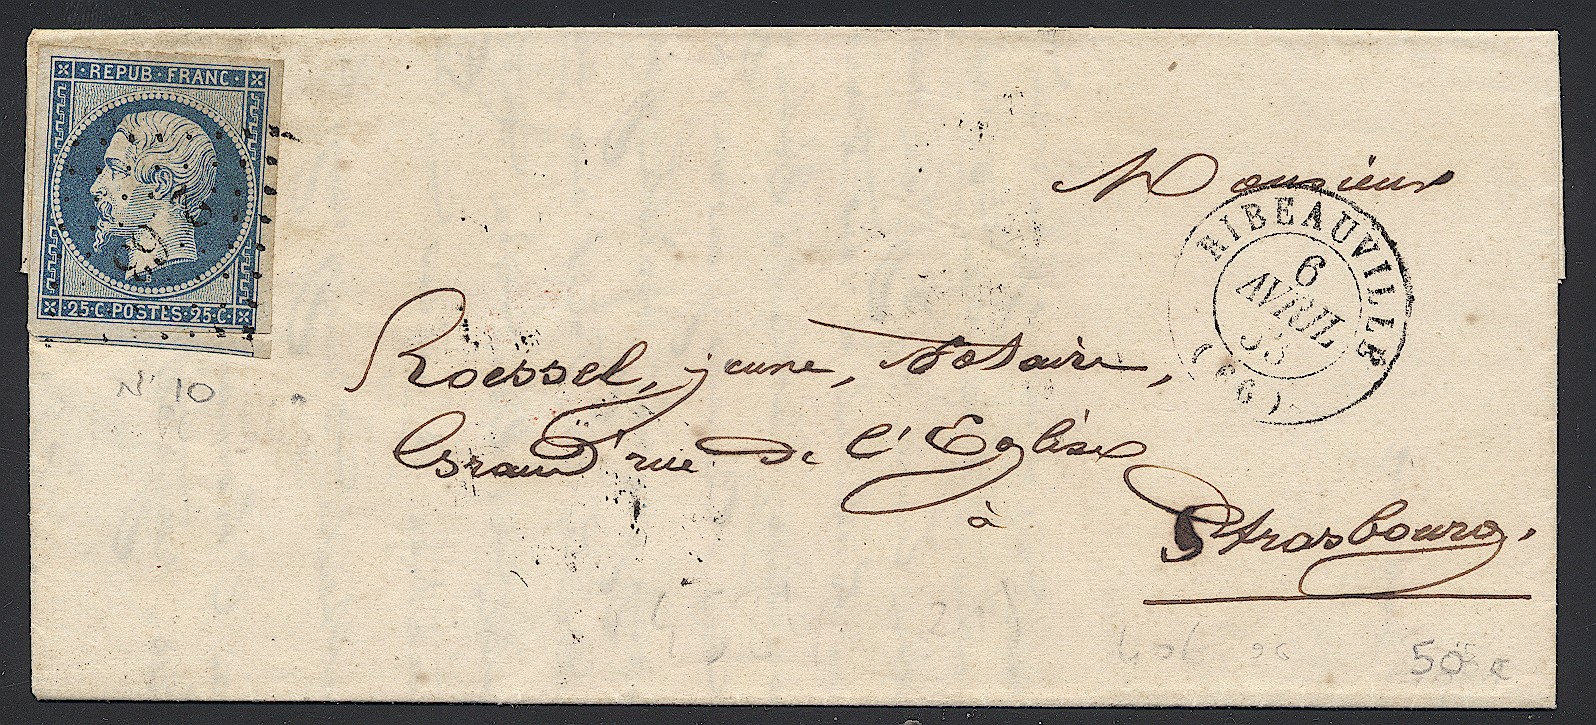 REPUB·FRANC·
·25·C·POSTES·25·C·
N° 10
Monsieur
RIBEAUVILLE
6
AVRIL
53
(66)
Roessel, jeune, Notaire,
Grand'rue de l'Eglise
à
Strasbourg.
50 €